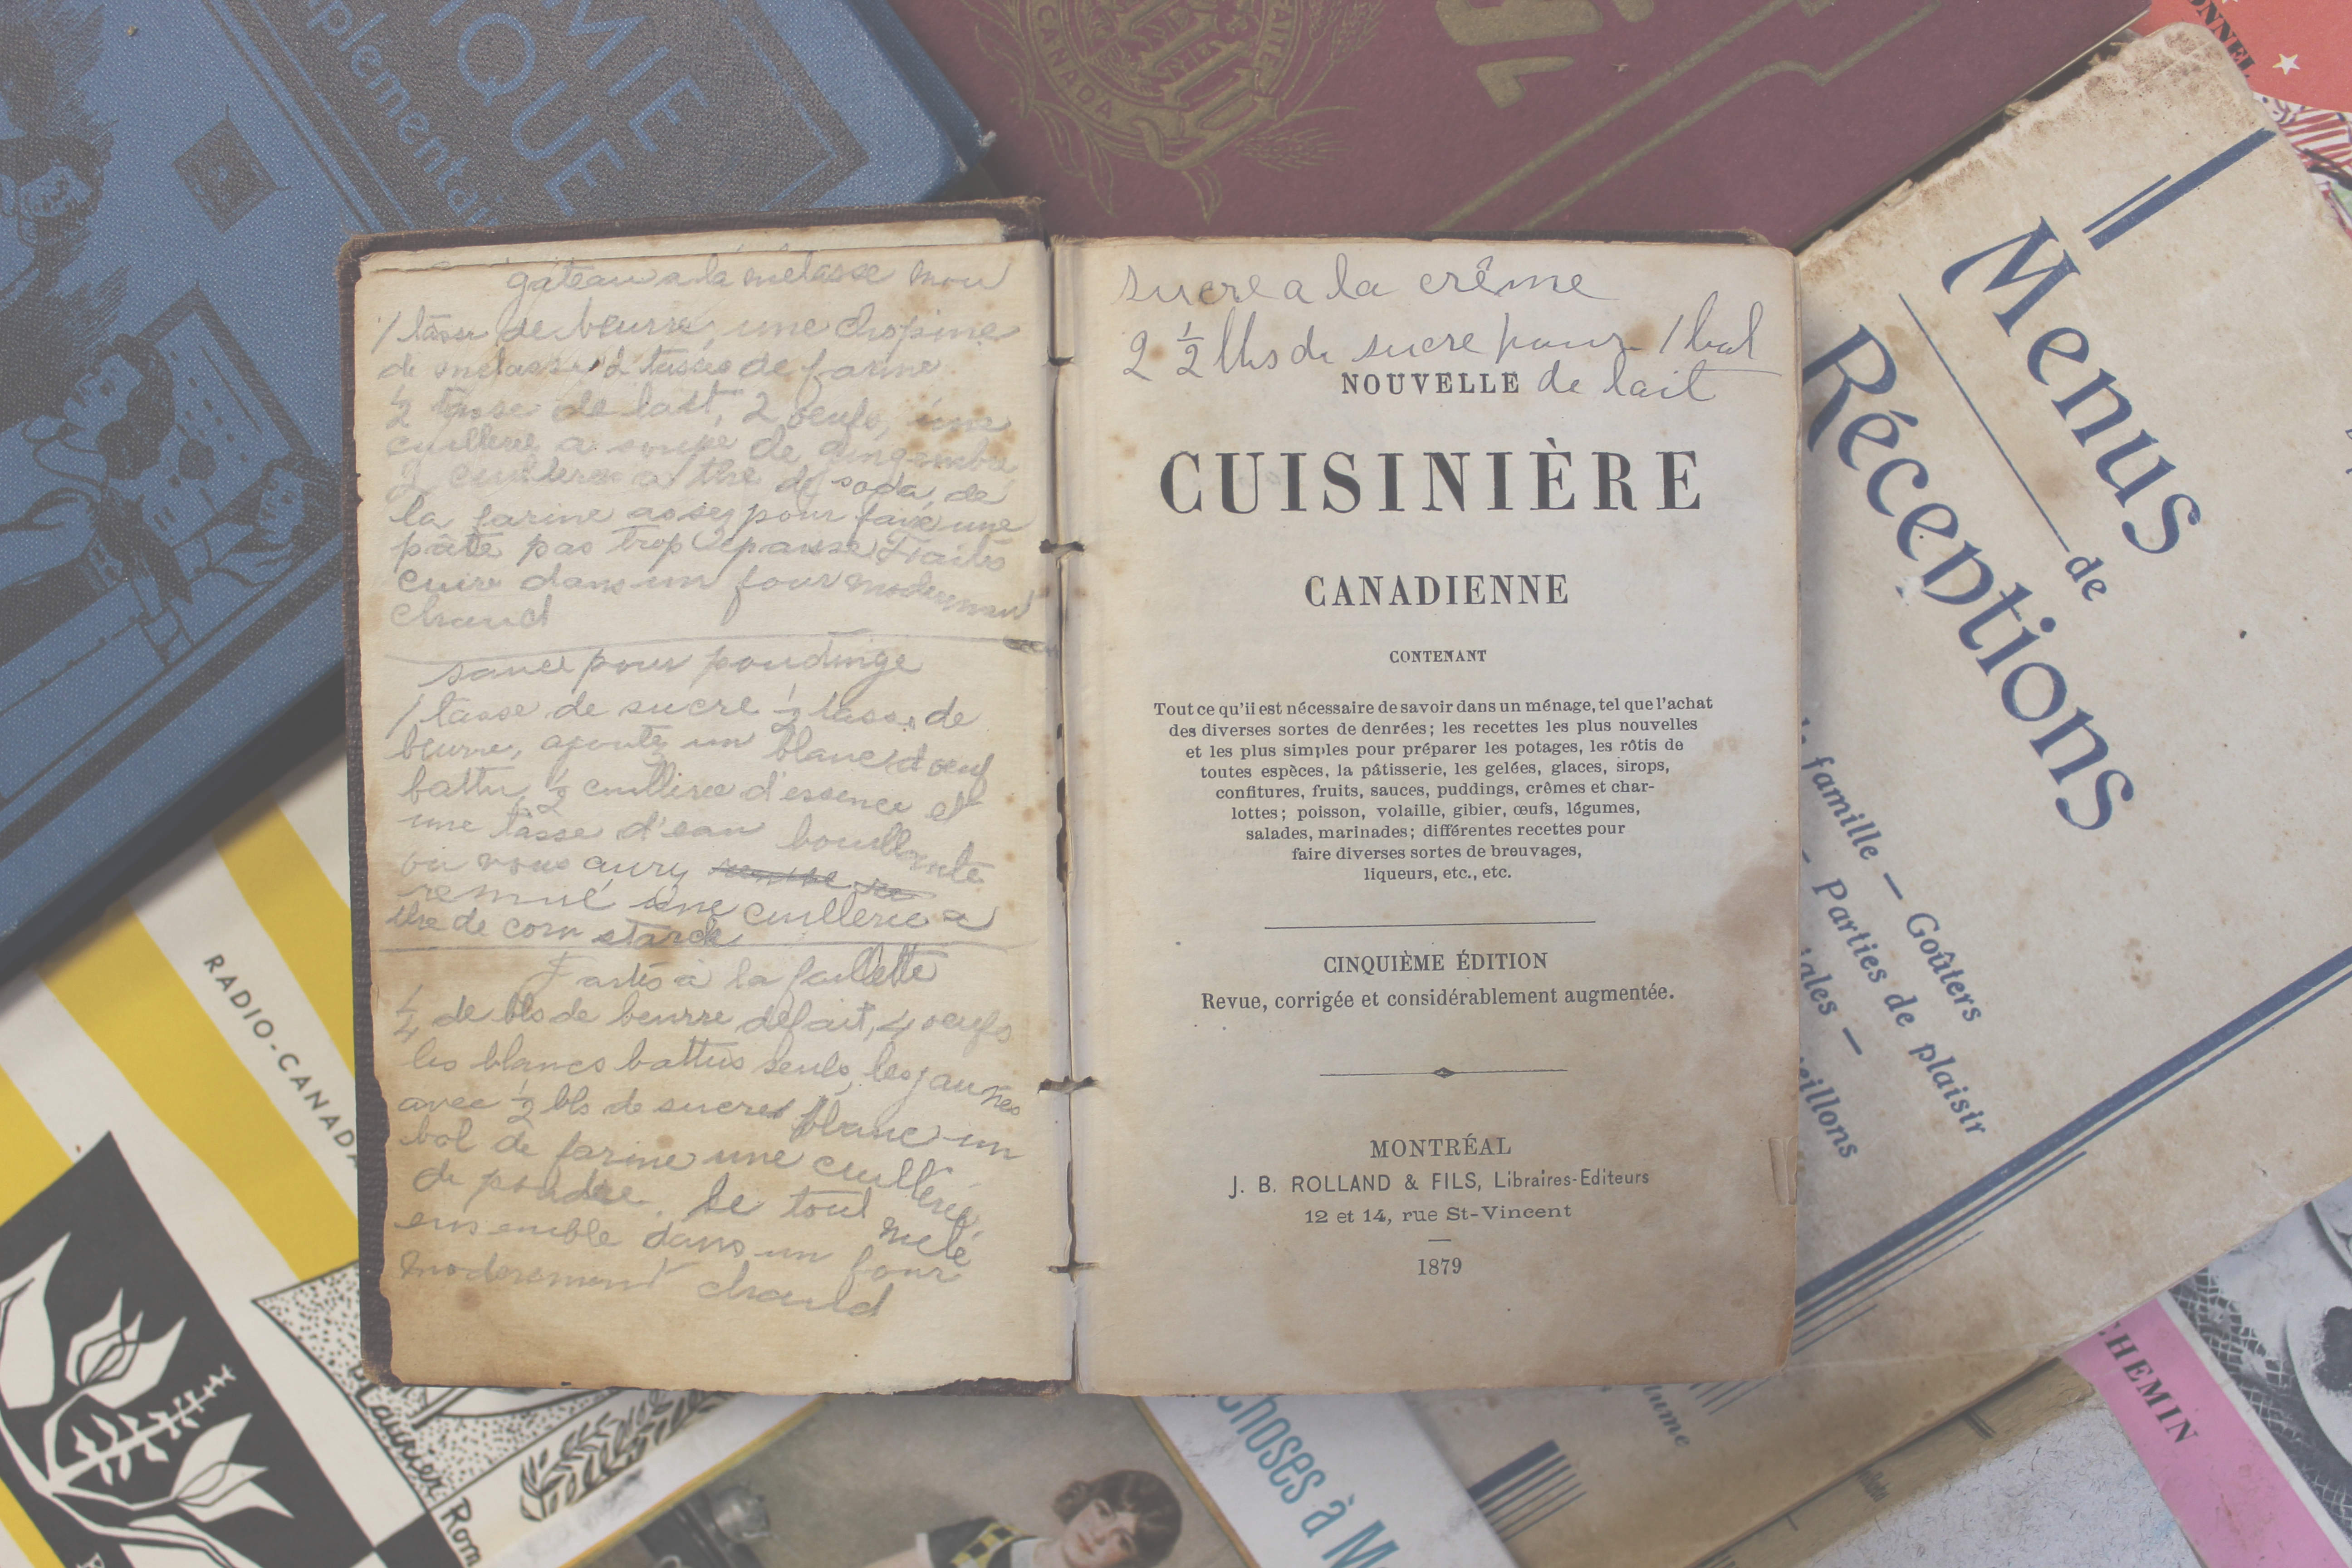 MIE
IQUE
CANADA
RADIO-CANADA
gateau a la melasse mou
1 tasse de beurre, une chopine
de melasse, 2 tasses de farine
1/2 tasse de lait, 2 oeufs, une
cuilleree a soupe de gingembre
2 cuilleree a thé de soda, de
la farine assez pour faire une
pâte pas trop épaisse Faites
cuire dans un four moderement
chaud
sauce pour poudinge
1 tasse de sucre 1/2 tasse de
beurre, ajoutez un blanc d'oeuf
battu, 1/2 cuilleree d'essence et
une tasse d'eau bouillante
ou vous aurez
remué une cuilleree a
thé de corn starch
a la
1/4 de lbs de beurre défait, 4 oeufs
les blancs battus seuls, les jaunes
avec 1/2 lbs de sucre blanc un
bol de farine une cuilleree
de poudre. Le tout melé
ensemble dans un four
moderement chauld
sucre a la crême
2 1/2 lbs de sucre pour 1 bol
de lait
NOUVELLE
CUISINIÈRE
CANADIENNE
CONTENANT
Tout ce qu'il est nécessaire de savoir dans un ménage, tel que l'achat
des diverses sortes de denrées; les recettes les plus nouvelles
et les plus simples pour préparer les potages, les rôtis de
toutes espèces, la pâtisserie, les gelées, glaces, sirops,
confitures, fruits, sauces, puddings, crêmes et char-
lottes; poisson, volaille, gibier, œufs, légumes,
salades, marinades; différentes recettes pour
faire diverses sortes de breuvages,
liqueurs, etc., etc.
CINQUIÈME ÉDITION
Revue, corrigée et considérablement augmentée.
MONTRÉAL
J. B. ROLLAND & FILS, Libraires-Editeurs
12 et 14, rue St-Vincent
1879
Menus
de
Réceptions
famille — Goûters
— Parties de plaisir
Choses à M
HEMIN